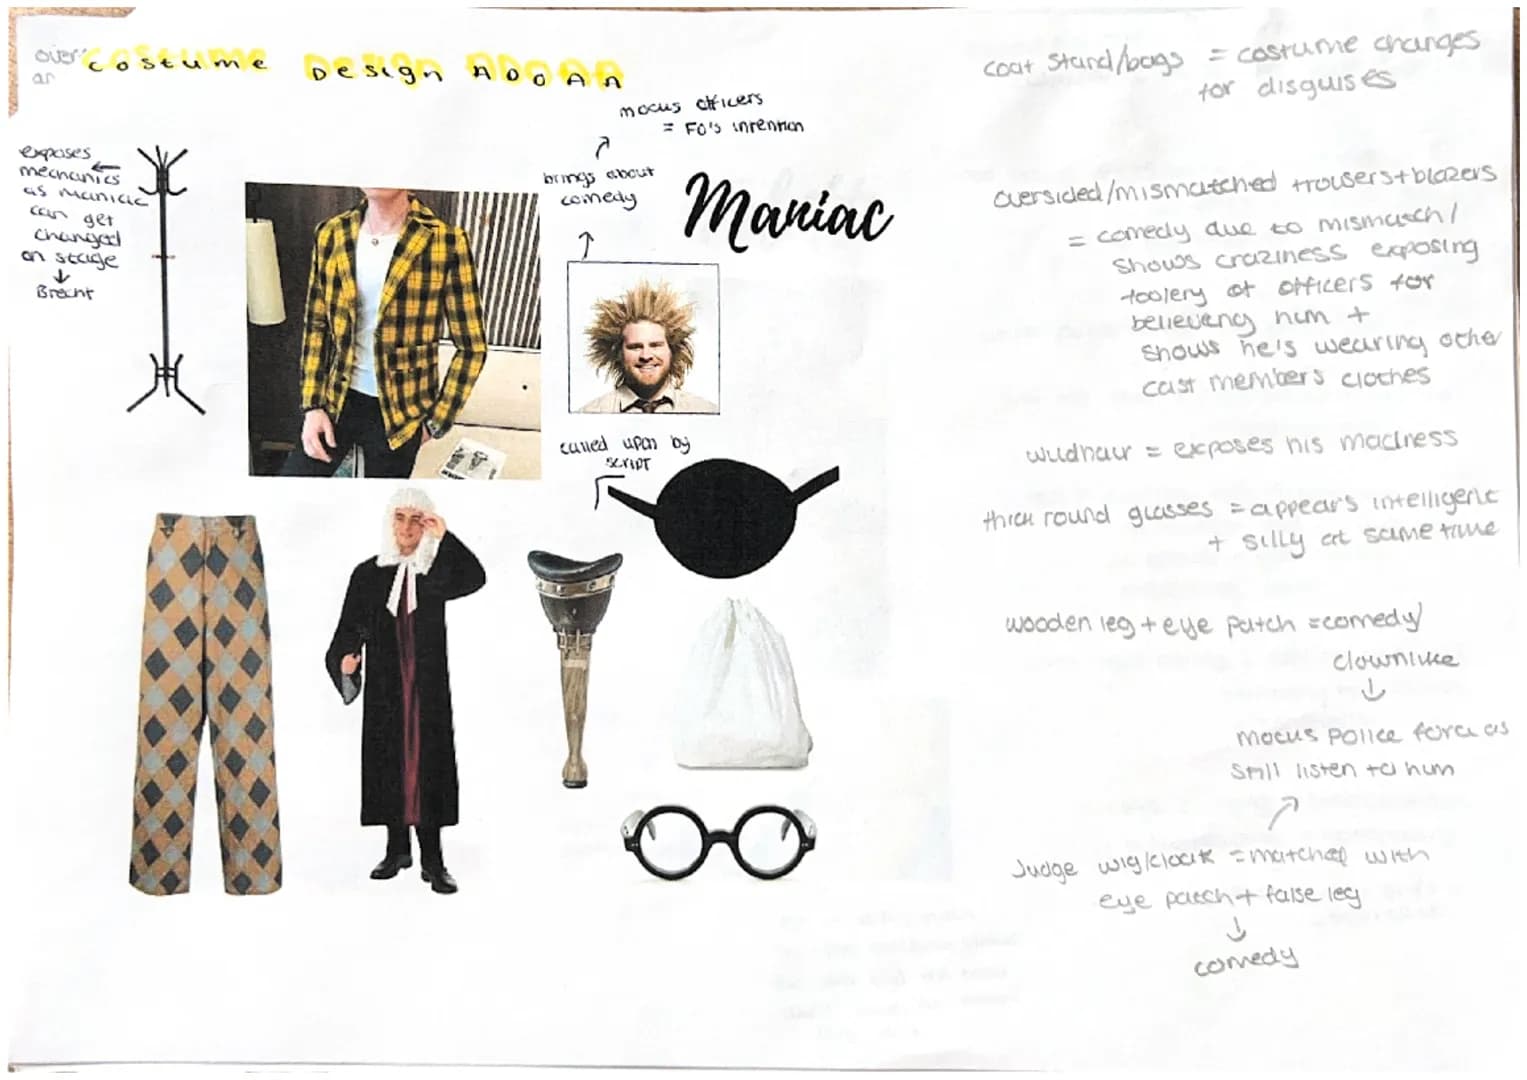 over
an
costume Design ADOAA
mocks officers
= FO's intention
brings about
comedy
Maniac
exposes
mechanics
as maniac
can get
changed
on stage
Brecht
called upon by
script
coat stand/bags = costume changes
for disguises
oversided/mismatched trousers+blazers
= comedy due to mismatch/
shows craziness exposing
foolery of officers for
believeing him +
shows he's wearing other
cast members clothes
wildhair = exposes his madness
thick round glasses = appears intelligent
+ silly at same time
wooden leg + eye patch = comedy/
clownlike
mocks police force as
still listen to him
Judge wig/cloak = matched with
eye patch + false leg
comedy